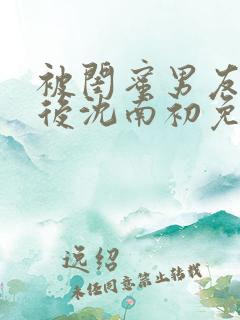 被閨蜜男友
後沈南初免
逸绍
未经同意禁止转载